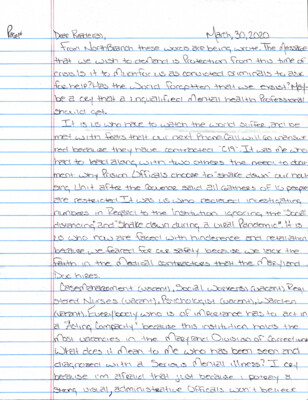 Dear Reaterson, March, 30, 2020
From North Branch these words are being wrote. The message
that we wish to demand is Protection from this time of
crisis. Is it to much for us as convicted criminals to ask
for help? Has the World forgotten that we exist? May
be a cry that a unqualified Mental Health Professional
should get.
It is us who have to watch the world suffer, and be
met with fears that our next Phone Call will go unanswe
red because they have contracted "C19". It was me who
had to lead along with two others the need to docu
ment why Prison Officials choose to "shake down" our hou
sing Unit after the Governor said all gathers of 10 people
are restricted. It was us who received investigating
numbers in Respect to the Institution ignoring the "Social
distancing" and "shake down during a viral Pandemic". It is
us who now are faced with hinderence and retaliation
because we feared for our safety because we lack the
faith in the Medical contractors that the Maryland
Doc hires.
Case Management (vacant), Social Workers (vacant), Reg
istered Nurses (vacant), Psychologist (vacant), Warden
(vacant). Everybody who is of importance has to act in
a "Acting Compacity" because this institution holds the
most vacancies in the Maryland Division of Corrections.
What does it mean to me who has been seen and
diagnosed with a Serious Mental Illness? I cry
because im afraid that just because i portray a
strong visual, administrative officials won't believe